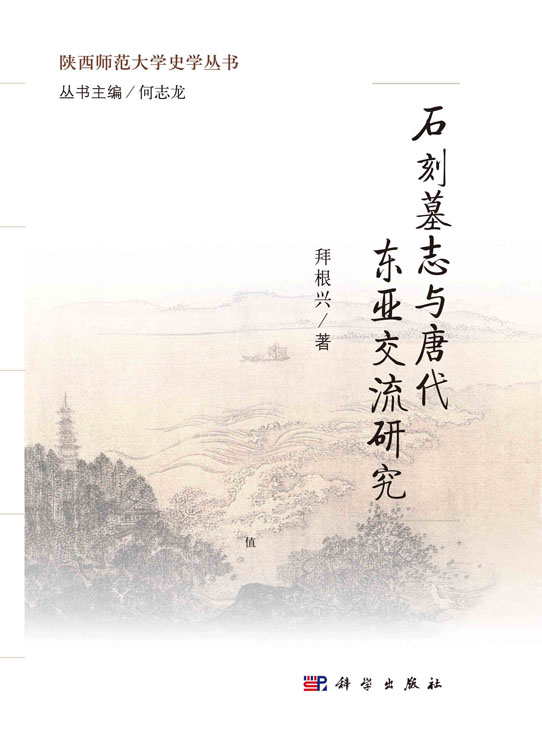 陕西师范大学史学丛书
丛书主编/何志龙
石刻墓志与唐代
东亚交流研究
拜根兴/著
值
科学出版社